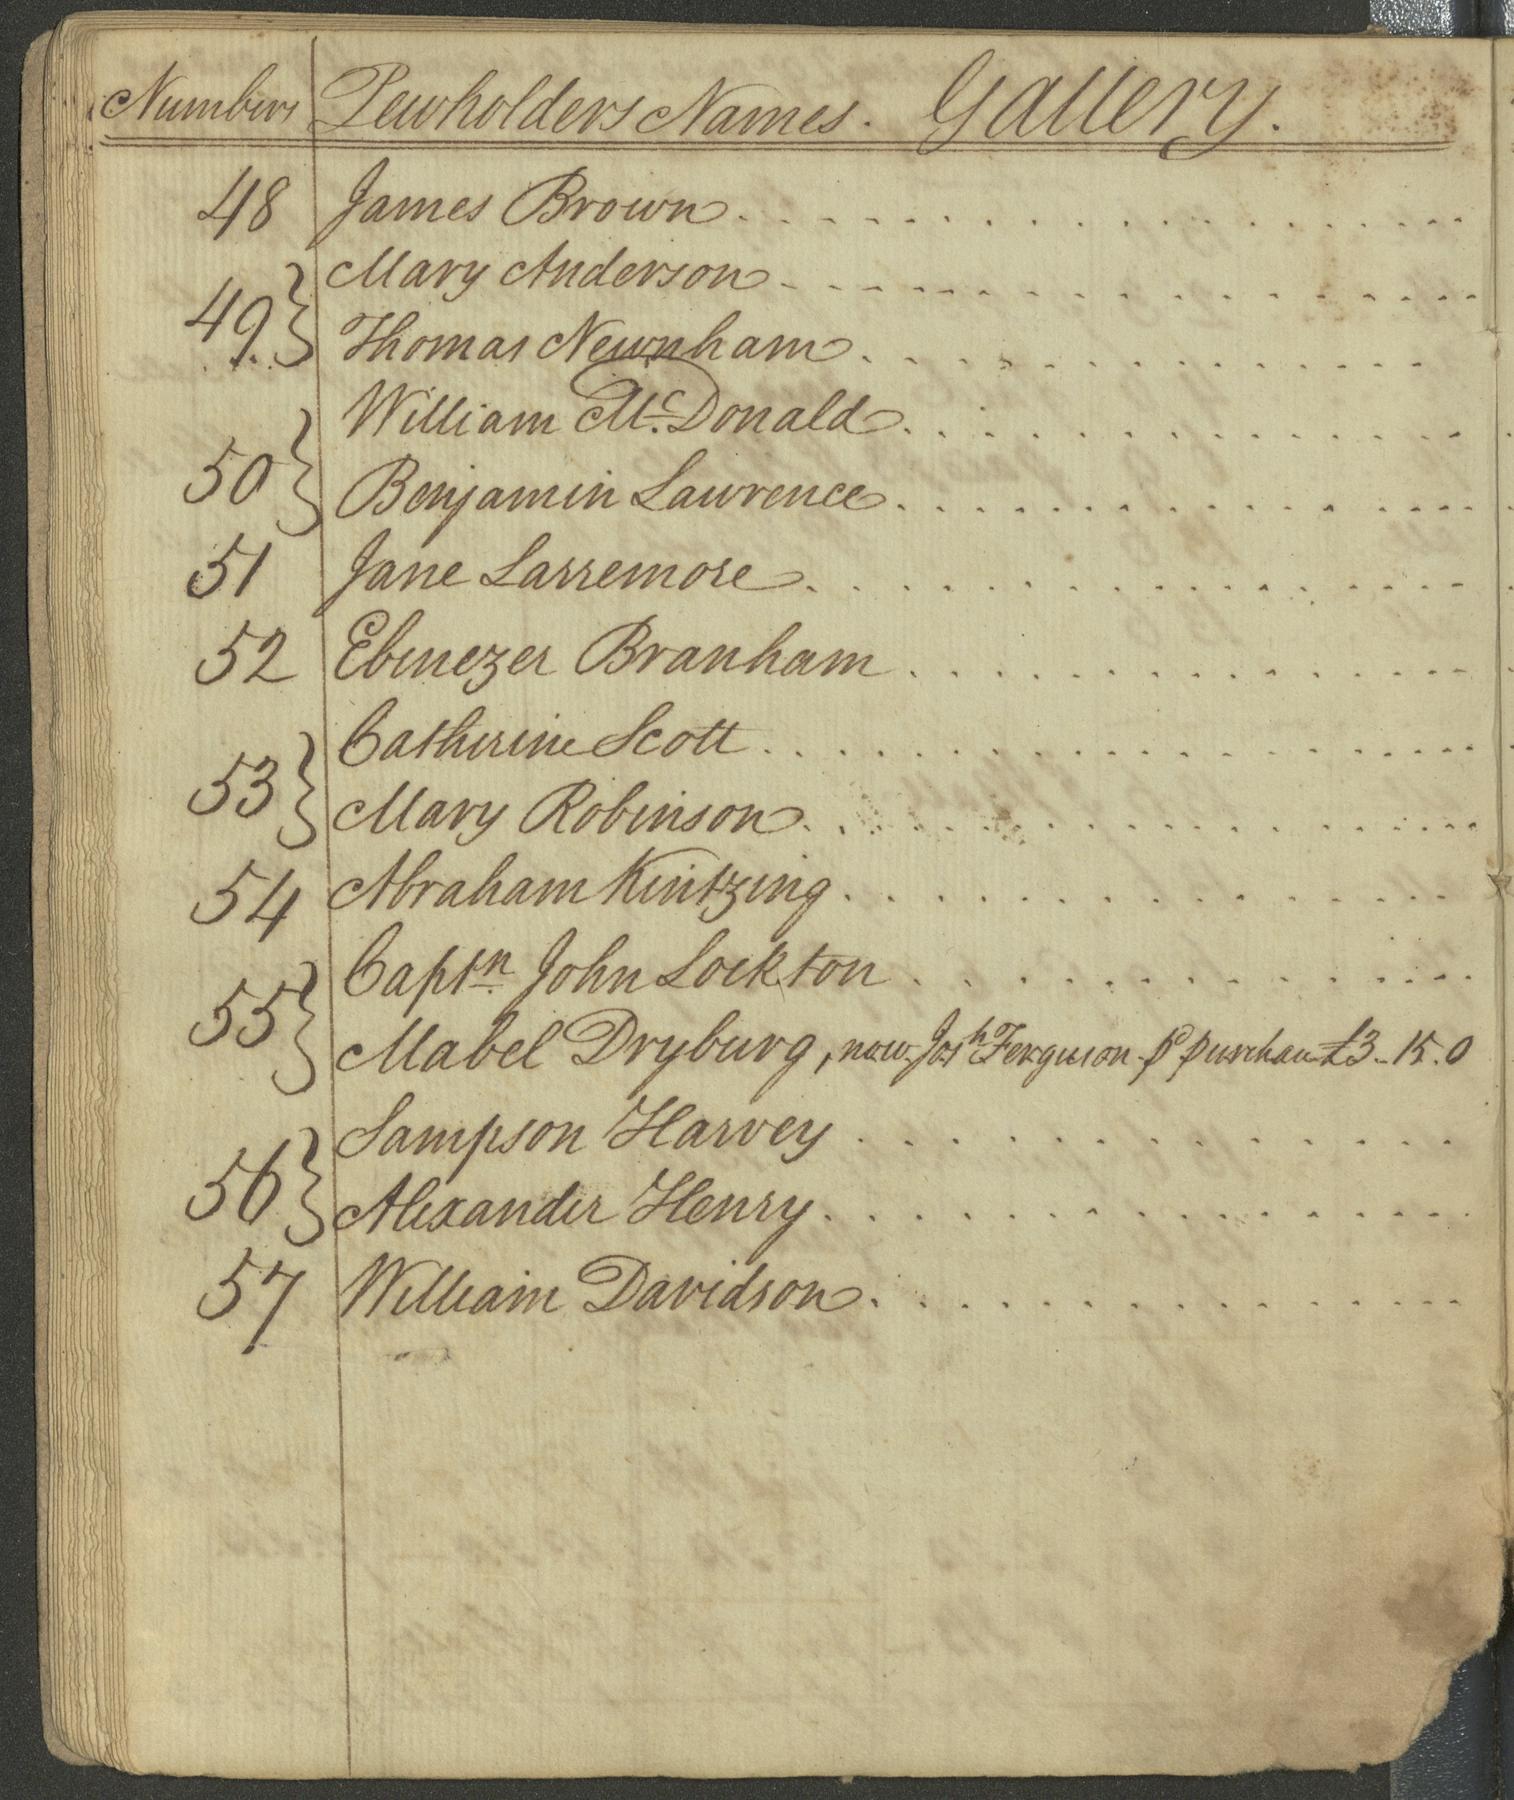 Numbers Pewholders Names. Gallery.
48 James Brown
Mary Anderson
49 Thomas Newnham
William McDonald
50 Benjamin Lawrence
51 Jane Larremore
52 Ebenezer Branham
Catherine Scott
53 Mary Robinson
54 Abraham Kintzing
Captn John Lockton
55 Mabel Dryburg, now Josh Ferguson p purchase £3-15.0
Sampson Harvey
56 Alexander Henry
57 William Davidson